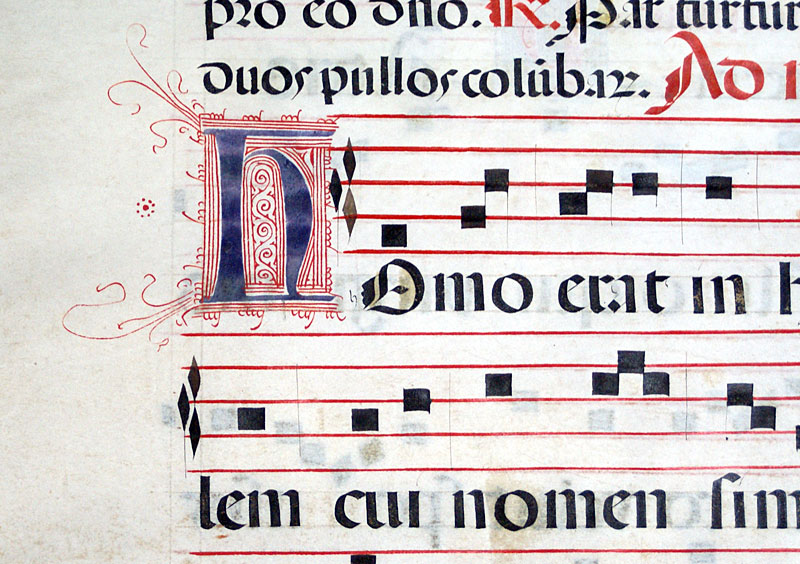 pro eo dño. R. Par turtur
duos pullos colūbaꝝ. Ad
h Omo erat in h
lem cui nomen sim